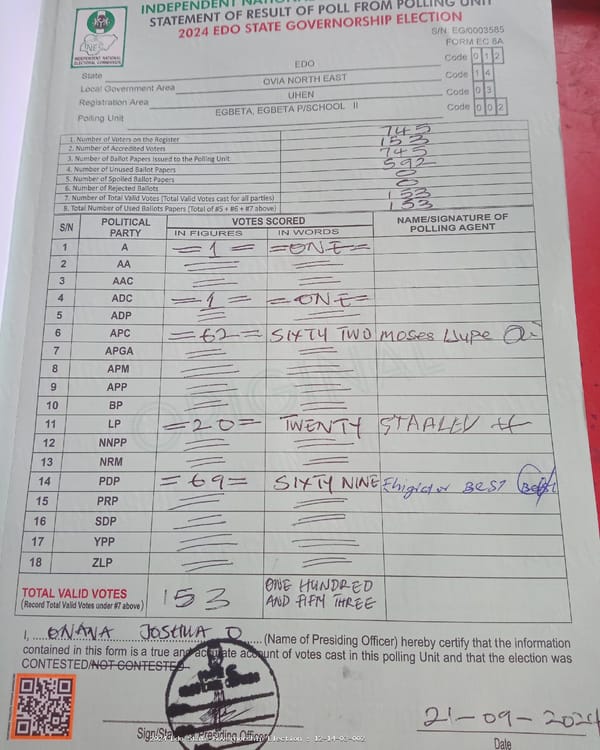 INDEPENDENT NATIONAL
STATEMENT OF RESULT OF POLL FROM POLLING UNIT
2024 EDO STATE GOVERNORSHIP ELECTION
S/N: EG/0003585
FORM EC 8A
INDEPENDENT NATIONAL ELECTORAL COMMISSION
State EDO Code 0 1 2
Local Government Area OVIA NORTH EAST Code 1 4
Registration Area UHEN Code 0 3
Polling Unit EGBETA, EGBETA P/SCHOOL II Code 0 0 2
1. Number of Voters on the Register 745
2. Number of Accredited Voters 153
3. Number of Ballot Papers Issued to the Polling Unit 745
4. Number of Unused Ballot Papers 592
5. Number of Spoiled Ballot Papers 0
6. Number of Rejected Ballots 0
7. Number of Total Valid Votes (Total Valid Votes cast for all parties) 153
8. Total Number of Used Ballots Papers (Total of #5 + #6 + #7 above) 153
S/N POLITICAL PARTY VOTES SCORED NAME/SIGNATURE OF POLLING AGENT
IN FIGURES IN WORDS
1 A =1= =ONE=
2 AA
3 AAC
4 ADC =1= =ONE=
5 ADP
6 APC =62= SIXTY TWO MOSES
7 APGA
8 APM
9 APP
10 BP
11 LP =20= TWENTY
12 NNPP
13 NRM
14 PDP =69= SIXTY NINE BEST
15 PRP
16 SDP
17 YPP
18 ZLP
TOTAL VALID VOTES 153 ONE HUNDRED AND FIFTY THREE
(Record Total Valid Votes under #7 above)
I, ONANA JOSHUA O (Name of Presiding Officer) hereby certify that the information
contained in this form is a true and accurate account of votes cast in this polling Unit and that the election was
CONTESTED/NOT CONTESTED
21-09-2024
Sign/Stamp Presiding Officer
Date